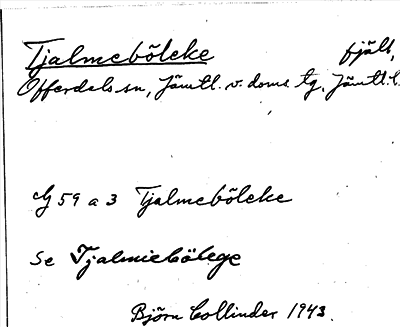 Tjalmebölcke fjäll,
Offerdals sn, Jämtl. v. doms. tg, Jämtl. l.
59 a 3 Tjalmebölcke
Se Tjalmiebölege
Björn Collinder 1943.